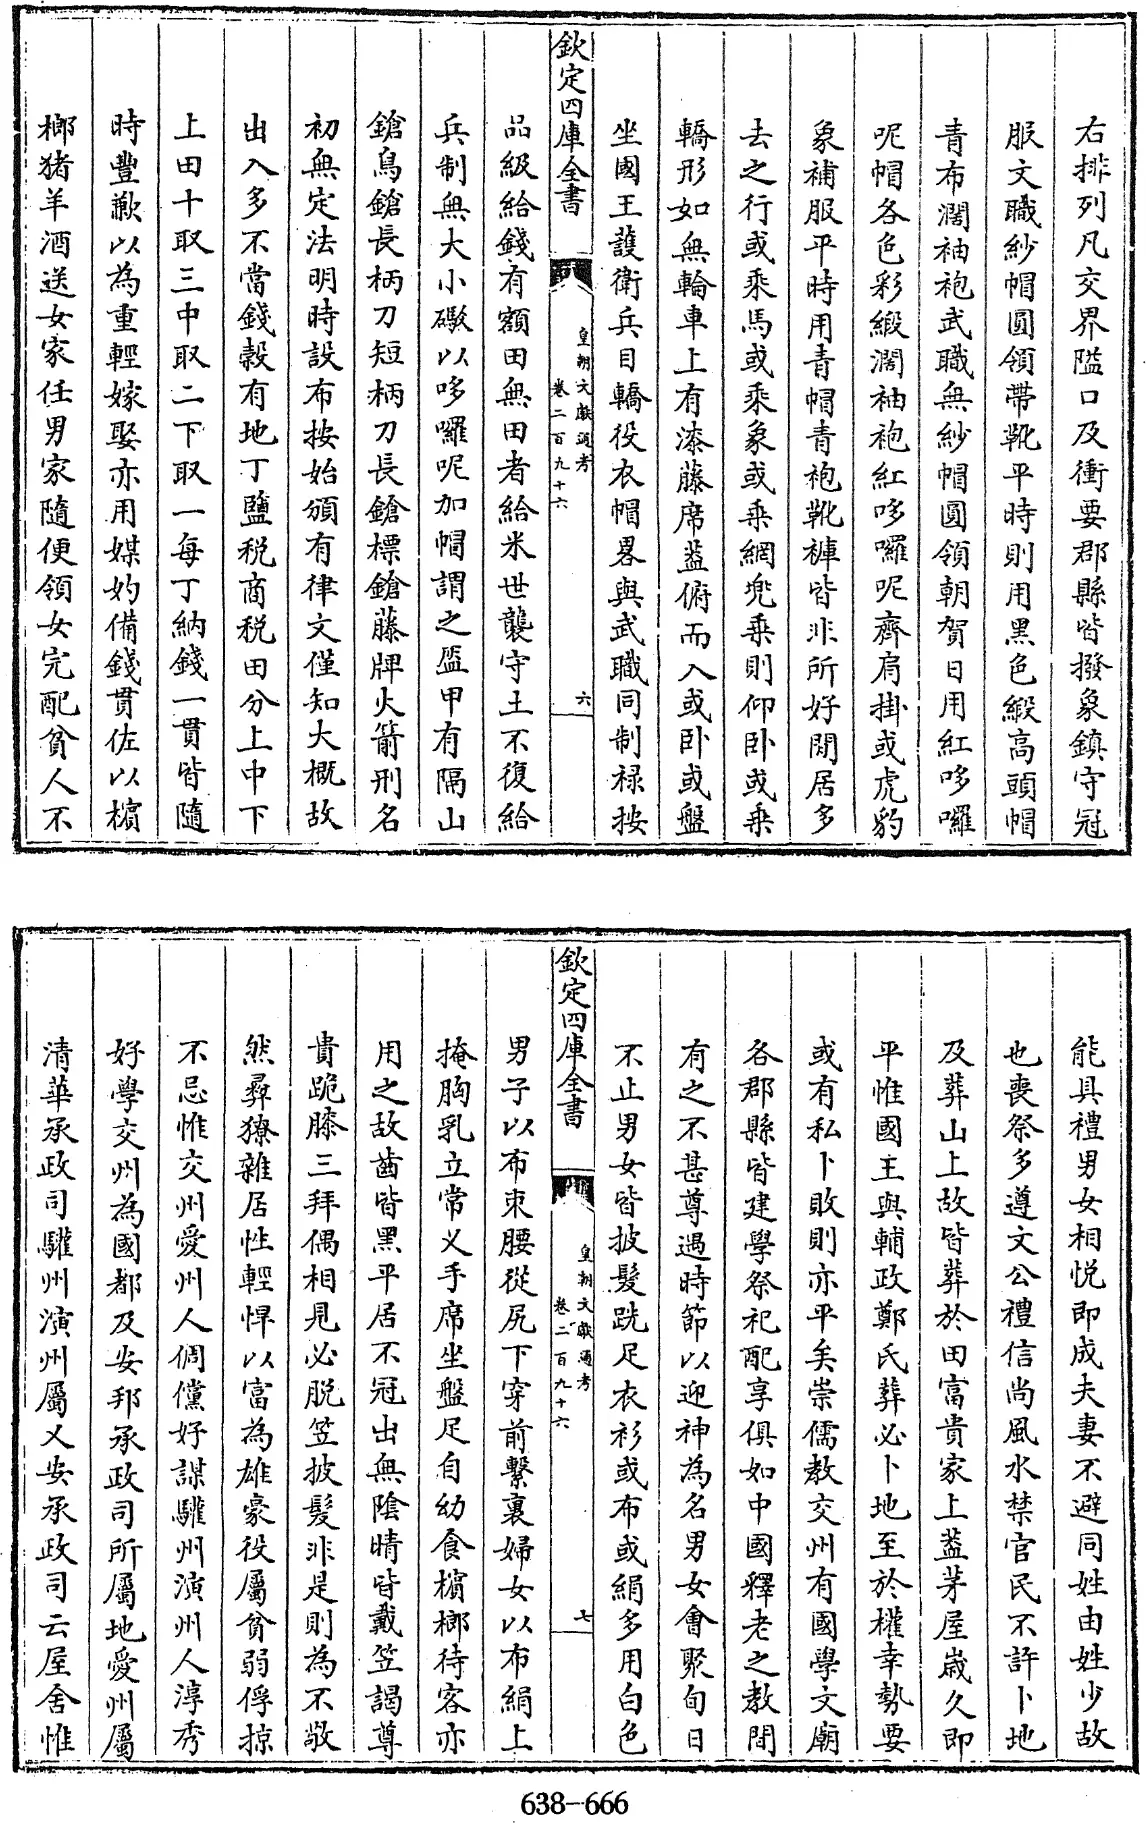 右排列凡交界隘口及衝要郡縣皆撥象鎮守冠
服文職紗帽圓領帶靴平時則用黑色緞高頭帽
青布濶袖袍武職無紗帽圓領朝賀日用紅哆囉
呢帽各色彩緞濶袖袍紅哆囉呢齊肩掛或虎豹
象補服平時用青帽青袍靴褲皆非所好閒居多
去之行或乘馬或乘象或乘網兜乘則仰卧或乘
轎形如無輪車上有漆藤席葢俯而入或卧或盤
坐國王護衛兵目轎役衣帽畧與武職同制祿按
欽定四庫全書
皇朝文獻通考
卷二百九十六
六
品級給錢有額田無田者給米世襲守土不復給
兵制無大小礮以哆囉呢加帽謂之盔甲有隔山
鎗鳥鎗長柄刀短柄刀長鎗標鎗藤牌火箭刑名
初無定法明時設布按始頒有律文僅知大概故
出入多不當錢穀有地丁鹽稅商稅田分上中下
上田十取三中取二下取一每丁納錢一貫皆隨
時豐歉以為重輕嫁娶亦用媒妁備錢貫佐以檳
榔猪羊酒送女家任男家隨便領女完配貧人不
能具禮男女相悅即成夫妻不避同姓由姓少故
也喪祭多遵文公禮信尚風水禁官民不許卜地
及葬山上故皆葬於田富貴家上葢茅屋歲久即
平惟國王與輔政鄭氏葬必卜地至於權幸勢要
或有私卜敗則亦平矣崇儒教交州有國學文廟
各郡縣皆建學祭祀配享俱如中國釋老之教間
有之不甚尊遇時節以迎神為名男女會聚旬日
不止男女皆披髮跣足衣衫或布或絹多用白色
欽定四庫全書
皇朝文獻通考
卷二百九十六
七
男子以布束腰從尻下穿前繫裏婦女以布絹上
掩胸乳立常义手席坐盤足自幼食檳榔待客亦
用之故齒皆黑平居不冠出無陰晴皆戴笠謁尊
貴跪膝三拜偶相見必脫笠披髮非是則為不敬
然彞獠雜居性輕悍以富為雄豪役屬貧弱俘掠
不忌惟交州愛州人倜儻好謀驩州演州人淳秀
好學交州為國都及安邦承政司所屬地愛州屬
清華承政司驩州演州屬乂安承政司云屋舍惟
638-666